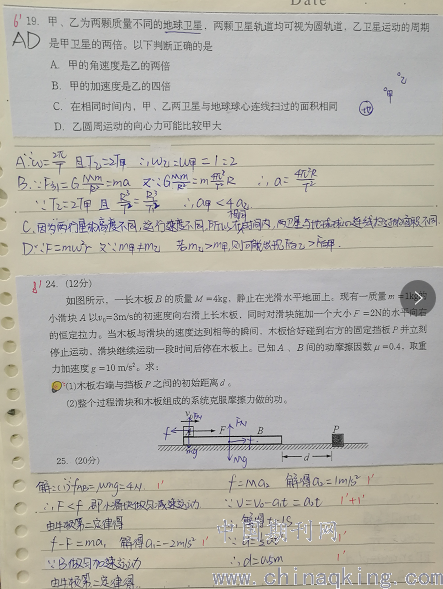 Date
6' 19. 甲、乙为两颗质量不同的地球卫星，两颗卫星轨道均可视为圆轨道，乙卫星运动的周期
AD 是甲卫星的两倍。以下判断正确的是
A. 甲的角速度是乙的两倍
B. 甲的加速度是乙的四倍
C. 在相同时间内，甲、乙两卫星与地球球心连线扫过的面积相同
D. 乙圆周运动的向心力可能比较甲大
乙
甲
地
A ∵ω=2π/T 且T乙=2T甲 ∴ω乙=ω甲=1=2
B.∵F引=G Mm/R²=ma 又∵G Mm/R²=m 4π²/T² R ∴a=4π²R/T²
∵T乙=2T甲 且 R³/T²=R³/T² ∴a甲<4a乙
C.因为两个卫星高度不同,运行速度不同,所以相同时间内,两卫星与地球球心连线扫过的面积不同
D∵F=mω²r 又∵m甲≠m乙 若m乙>m甲,则可能出现F向乙>F向甲.
8' 24. (12分)
如图所示，一长木板 B 的质量 M=4kg，静止在光滑水平地面上。现有一质量 m=1kg的
小滑块 A 以v₀=3m/s的初速度向右滑上长木板，同时对滑块施加一个大小 F=2N的水平向右
的恒定拉力。当木板与滑块的速度达到相等的瞬间，木板恰好碰到右方的固定挡板 P 并立刻
停止运动，滑块继续运动一段时间后停在木板上。已知 A 、B 间的动摩擦因数 μ=0.4，取重
力加速度 g=10 m/s²。求：
(1)木板右端与挡板 P 之间的初始距离 d 。
(2)整个过程滑块和木板组成的系统克服摩擦力做的功。
f F B P
FN
mg Mg d
25. (20分)
解:(1)∵fAB=μmg=4N. 1'
∴F<f,即小滑块做匀减速运动
由牛顿第二定律得
f-F=ma₁ 解得a₁=-2m/s² 1'
∵B做匀加速运动
由牛顿第二定律得
f=Ma₂ 解得a₂=1m/s² 1'
∵V=V₀-a₁t=a₂t 1'+1'
∴解得t=1s 1'
∴d=0.5m 1'
中国期刊网
www.chinaqking.com